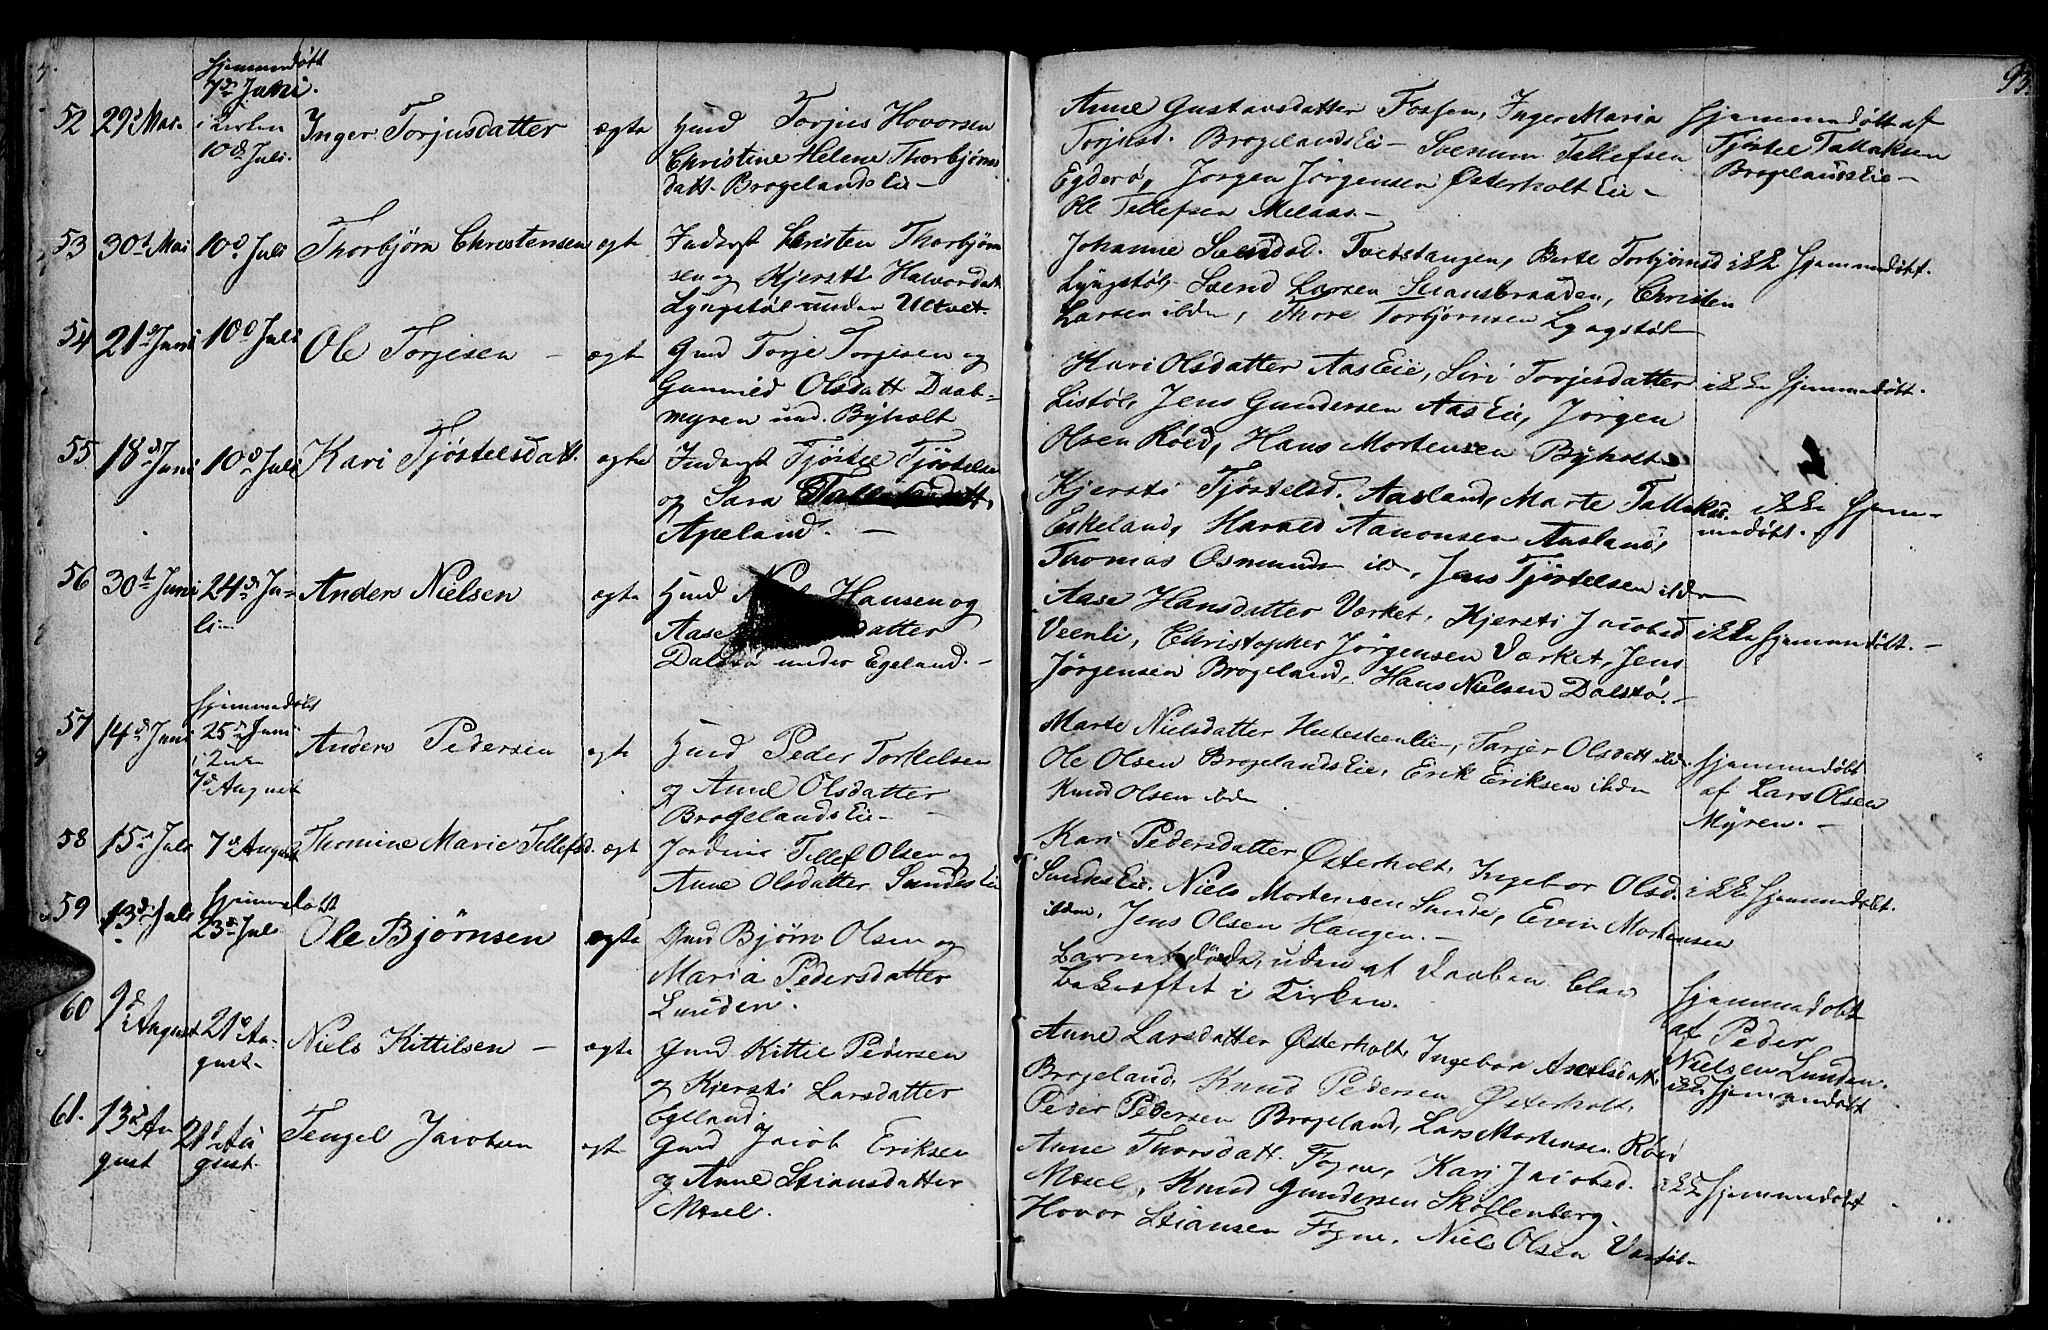 93.
hjemmedøbt
7de Juni.
52 29d Mai. i Kirken
10de Juli. Inger Torjusdatter ægte Husmd Torjus Hovorsen
Christine Helene Thorbjørns
datt. BrogelandsEie –
Anne Gustavsdatter Fossen, Inger Maria
Torjusd. BrogelandsEie – Svenum Tellefsen
Egderø, Jørgen Jørgensen Østerholt Eie –
Ole Tellefsen Melaas. –
Hjemmedøbt af
Tjøstel Tallaksen
BrogelandsEie –
53 30t Mai 10d Juli Thorbjørn Christensen ægte Inderst Christen Thorbjørn
sen og Kjersti Halvordatt.
Lyngstøl under Utvet.
Johanne Svendsd. Tvedstangen, Berte Torbjørnsd
Lyngstøl, Svend Larsen Svansbraaden, Christen
Larsen ibdm, Thore Torbjørnsen Lyngstøl
ikke hjemmedøbt.
54 21d Juni 10d Juli Ole Torjesen – ægte Gmd Torje Torjesen og
Gunnild Olsdatt Daab-
myren und. Byholt
Kari Olsdatter Aas Eie, Siri Torjesdatter
Listøl, Jens Gundersen Aas Eie, Jørgen
Olsen Røed, Hans Mortensen Byholt
ikke hjemmedøbt.
55 18d Juni 10d Juli Kari Tjøstelsdatt. ægte Inderst Tjøstel Tjøstelsen
og Sara
Apeland. –
Kjersti Tjøstelsd. Aasland, Marte Tallaksd.
Eskeland, Harald Aanonsen Aasland,
Thomas Osmunds ib., Jens Tjøstelsen ibdm
ikke hjem-
medøbt.
56 30t Juni 24d Ju-
li – Anders Nielsen ægte Husmd Niels Hansen og
Aase datter
Dalstø under Egeland. –
Aase Hansdatter Værket, Kjersti Jacobsd
Veenli, Christopher Jørgensen Værket, Jens
Jørgensen Brogeland, Hans Nielsen Dalstø. –
ikke hjemmedøbt. –
hjemmedøbt
57 14d Juni 25d Juni
i Kirken
7d August Anders Pedersen ægte Husmd Peder Torkelsen
og Anne Olsdatter
BrogelandsEie –
Marte Nielsdatter HutesteenEie, Tarjer Olsdatt ibdm
Ole Olsen BrogelandsEie, Erik Eriksen ibdm
Knud Olsen ibdm
hjemmedøbt
af Lars Olsen
Myren. –
58 15d Juli 7d August Thomine Marie Tellefsd. ægt Jordeier Tellef Olsen og
Anne Olsdatter Sundes Eie
Kari Pedersdatter Østerholt, Ingebor Olsd.
Sundes Eie, Niels Mortensen Sunde, Even Mortensen
ibdm, Jens Olsen Haugen. –
ikke hjemmedøbt.
59 13d Juli hjemmedøbt
23d Juli Ole Bjørnsen ægte Gmd Bjørn Olsen og
Maria Pedersdatter
Lunden.
Barnet døde, uden at Daaben blev
bekræftet i Kirken.
hjemmedøbt
af Peder
Nielsen Lunden.
60 9d August 21d Au-
gust – Niels Kittilsen – ægte Gmd Kittil Pedersen
og Kjersti Larsdatter
Egeland
Anne Larsdatter Østerholt, Ingebor Axelsdatt.
Brogeland, Knud Pedersen Østerholt,
Peder Pedersen Brogeland, Lars Mortensen Røed
ikke hjemmedøbt
61. 13d Au
gust 21d Au
gust. Tengel Jacobsen ægte Gmd Jacob Eriksen
og Anne Stiansdatter
Mesel.
Anne Thorsdatt. Fogne, Kari Jacobsd.
Mesel, Knud Gundersen Skollenberg,
Hovor Stiansen Fogne, Niels Olsen Varstøl –
ikke hjemmedøbt